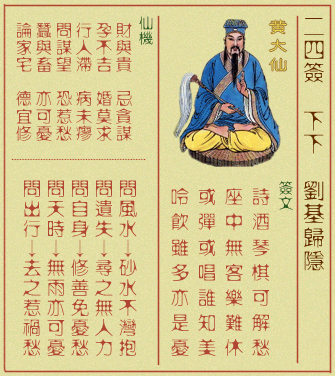 二四簽 下下 劉基歸隱
黃大仙
簽文
詩酒琴棋可解愁
座中無客樂難休
或彈或唱誰知美
吟飲雖多亦是憂
仙機
財與貴 忌貪謀
孕不吉 婚莫求
行人滯 病未瘳
問謀望 恐惹愁
蠶與畜 亦可憂
論家宅 德宜修
問風水→砂水不灣抱
問遺失→尋之無人力
問自身→修善免憂愁
問天時→無雨亦可憂
問出行→去之惹禍愁